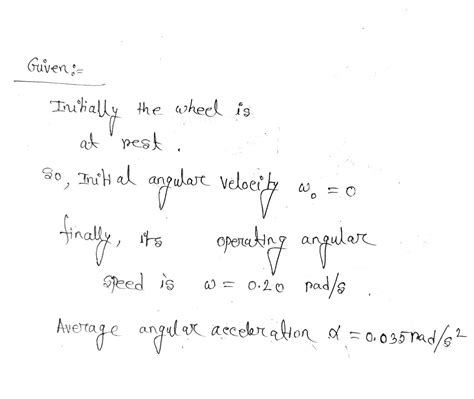 Given:-
Initially the wheel is
at rest.
So, Initial angular velocity ω₀ = 0
finally, its operating angular
speed is ω = 0.20 rad/s.
Average angular acceleration α = 0.035 rad/s²